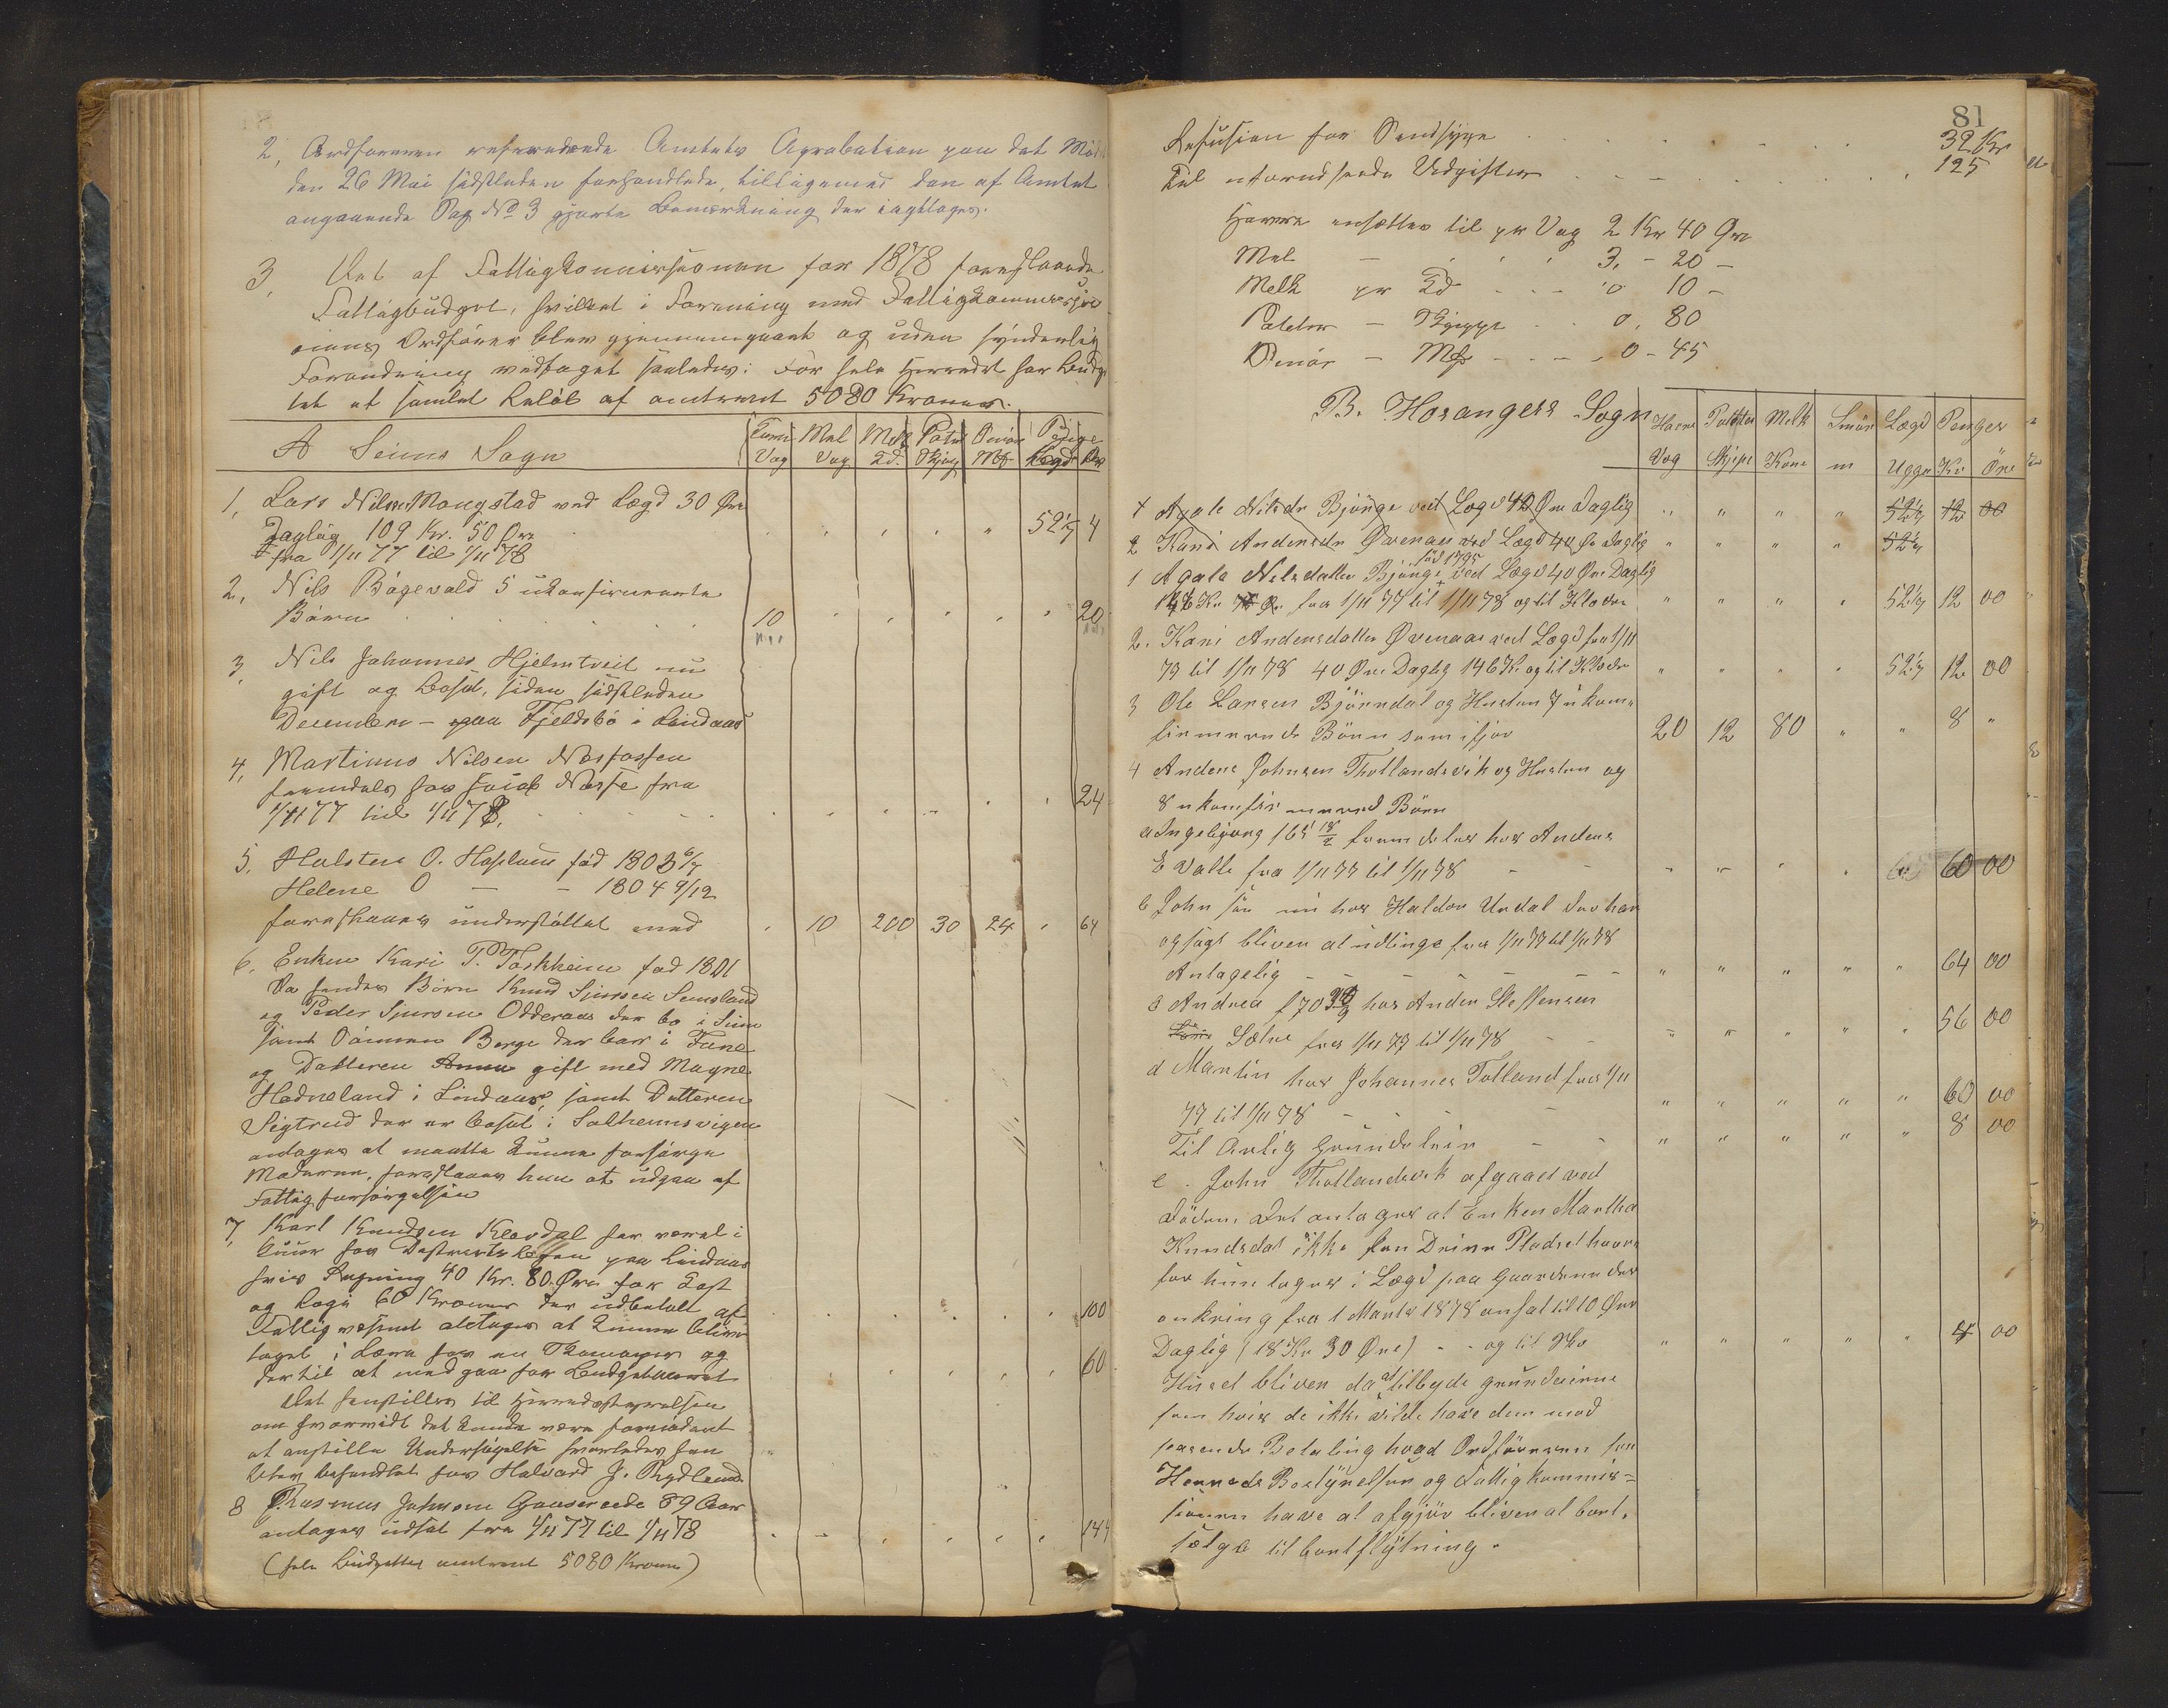 2, Ordføreren refererede Amtets Aprobation paa det Møde
den 26 Mai sidstleden forhandlede, tilligemed den af Amtet
angaaende Pag No 3 gjorte Bemærkning der iagttages.
3, Det af Fattigkommissionen for 1878 foreslaaede
Fattigbudget, hvilket i Forening med Fattigkommis
sionens Ordfører blev gjennemgaaet og uden synderlig
Forandring vedtaget saaledes: For hele Herredet har Budge
tet et samlet Beløb af omtrent 5080 Kroner.
A Seims Sogn Vog Mel Vog Melk Potet Smør Penge Lægd
1, Lars Nilsen Mongstad ved Lægd 30 Øre
Daglig 109 Kr. 50 Øre 52 1/7 4
fra 1/11 77 til 1/11 78
2, Nils Bøgevold 5 ukonfirmerte
Børn 10 20
3, Nils Johannes Hjelmtveit nu
gift og bosat, siden sidstleden
December - paa Fjeldsbø i Lindaas
4, Martinus Nilsen Næsfossen
fremdeles hos Næsse fra
1/11 77 til 1/11 78. 24
5, Halsten O. Haplum fød 1803 6/7
Helene O — — 1804 9/12
foreslaaes understøttet med 10 200 30 24 64
6, Enken Kari P. Toskheim fød 1801
Da hendes Børn Knud Sjursen Semsland
og Peder Sjursen Odderaas der bo i Seim
samt Sønnen Børge der bor i Fane
og Datteren Anna gift med Magne
Hodneland i Lindaas, samt Datteren
Sigtrud der er bosat i Solheimsvigen
antages at maatte kunne forsørge
Moderen, foreslaaes hun at udgaa af
Fattigforsørgelsen
7, Karl Knudsen Kleivdal har været i
Kuur hos Distriktslægen paa Lindaas
hvis Regning 40 Kr. 80 Øre for Kost
og Logi 60 Kroner der udbetalt af 100
Fattigvæsenet antages at kunne blive
taget i Lære hos en Skomager og
dertil at medgaa for Budgetaaret 60
Det henstilles til Herredsstyrelsen
om hvorvidt det kunde være fornødent
at anstille Undersøgelse hvorledes han
blev behandlet hos Halvard J. Rydland
8 Rasmus Johnsen Gaaserede 89 Aar
antages udsat fra 1/11 77 til 1/11 78 144
(hele Budgettet omtrent 5080 Kroner)
81
Refusion for Sindsyge 32 Kr
Til uforudseede Udgifter 125
Havre ansættes til pr Vog 2 Kr 40 Øre
Mel — 3, - 20 —
Melk pr Kd 0 10 —
Poteter — Skjeppe 0, 80
Smør — Mk — 0 - 45
B. Hosangers Sogn Havre Poteter Melk Smør Lægd Penger
Vog Skjepe Kane m Uger Kr Øre
1 Agate Nilsdr Bjønge ved Lægd 40 Øre Daglig " " " " 52 1/7 12 00
2 Kari Andersdr Øvenaas ved Lægd 40 Øre Daglig " " " " 52 1/7
1 Agate Nilsdatter Bjønge fød 1795 ved Lægd 40 Øre Daglig
146 Kr fra 1/11 77 til 1/11 78 og til Klæder " " " " 52 1/7 12 00
2. Kari Andersdatter Øvenaas ved Lægd fra 1/11
77 til 1/11 78 40 Øre Daglig 146 Kr og til Klæder " " " " 52 1/7 12 00
3 Ole Larsen Bjørndal og Hustru 7 ukon-
firmerede Børn som ifjor 20 12 80 " " 8 "
4 Anders Johnsen Thollandsvik og Hustru og
8 ukonfirmered Børn
a Ingebjørg fremdeles hos Anders
E Valle fra 1/11 77 til 1/11 78 60 00
b John hos Haldor Undal der har
ogsagt bliver at udtinge fra 1/11 77 til 1/11 78
Antagelig " " " " " 64 00
c Andrea hos Anders Steffensen
Sætre fra 1/11 77 til 1/11 78 " " " " " 56 00
d Martin hos Johannes Tolland fra 1/11
77 til 1/11 78 " " " " " 60 00
Til Aarlig Grundeleie " " " " " 8 00
e. John Thollandsvik afgaaet ved
Døden. Det antages at Enken Martha
Knudsdat ikke kan Drive Pladset hvor-
for hun tages i Lægd paa Gaardene der
omkring fra 1 Marts 1878 ansat til 10 Øre
Daglig (18 Kr 30 Øre) - - og til Sko " " " " " 4 00
Huset bliver da at tilbyde grundeierne
som hvis de ikke vilde have dem mod
passende Betaling hvad Ordføreren for
Herreds Bestyrelsen og Fattigkommis-
sionen have at afgjøre bliver at bort-
sælge til bortflytning.